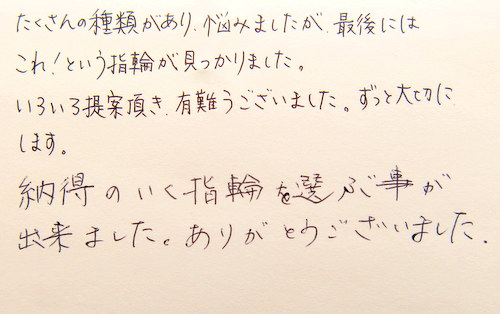 たくさんの種類があり、悩みましたが、最後には
これ!という指輪が見つかりました。
いろいろ提案頂き、有難うございました。ずっと大切に
します。
納得のいく指輪を選ぶ事が
出来ました。ありがとうございました.